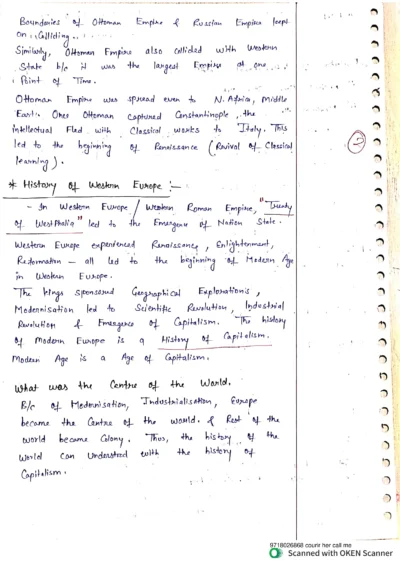 Boundaries of Ottoman Empire & Russian Empire kept
on colliding.
Similarly, Ottoman Empire also collided with Western
State b/c it was the largest Empire at one
Point of Time.
Ottoman Empire was spread even to N. Africa, Middle
East. Once Ottoman captured Constantinople, the
intellectual Fled with Classical works to Italy. This
led to the beginning of Renaissance (Revival of Classical
learning).
* History of Western Europe :-
- In Western Europe / Western Roman Empire, "Treaty
of WestPhalia" led to the Emergence of Nation State.
Western Europe experienced Renaissance, Enlightenment,
Reformation — all led to the beginning of Modern Age
in Western Europe.
The kings sponsored Geographical Explorations,
Modernisation led to Scientific Revolution, Industrial
Revolution & Emergence of Capitalism. The history
of Modern Europe is a History of Capitalism.
Modern Age is a Age of Capitalism.
What was the Centre of the World.
B/c of Modernisation, Industrialisation, Europe
became the Centre of the world. & Rest of the
world became Colony. Thus, the history of the
World can Understood with the history of
Capitalism.
9718026868 courir her call me
Scanned with OKEN Scanner